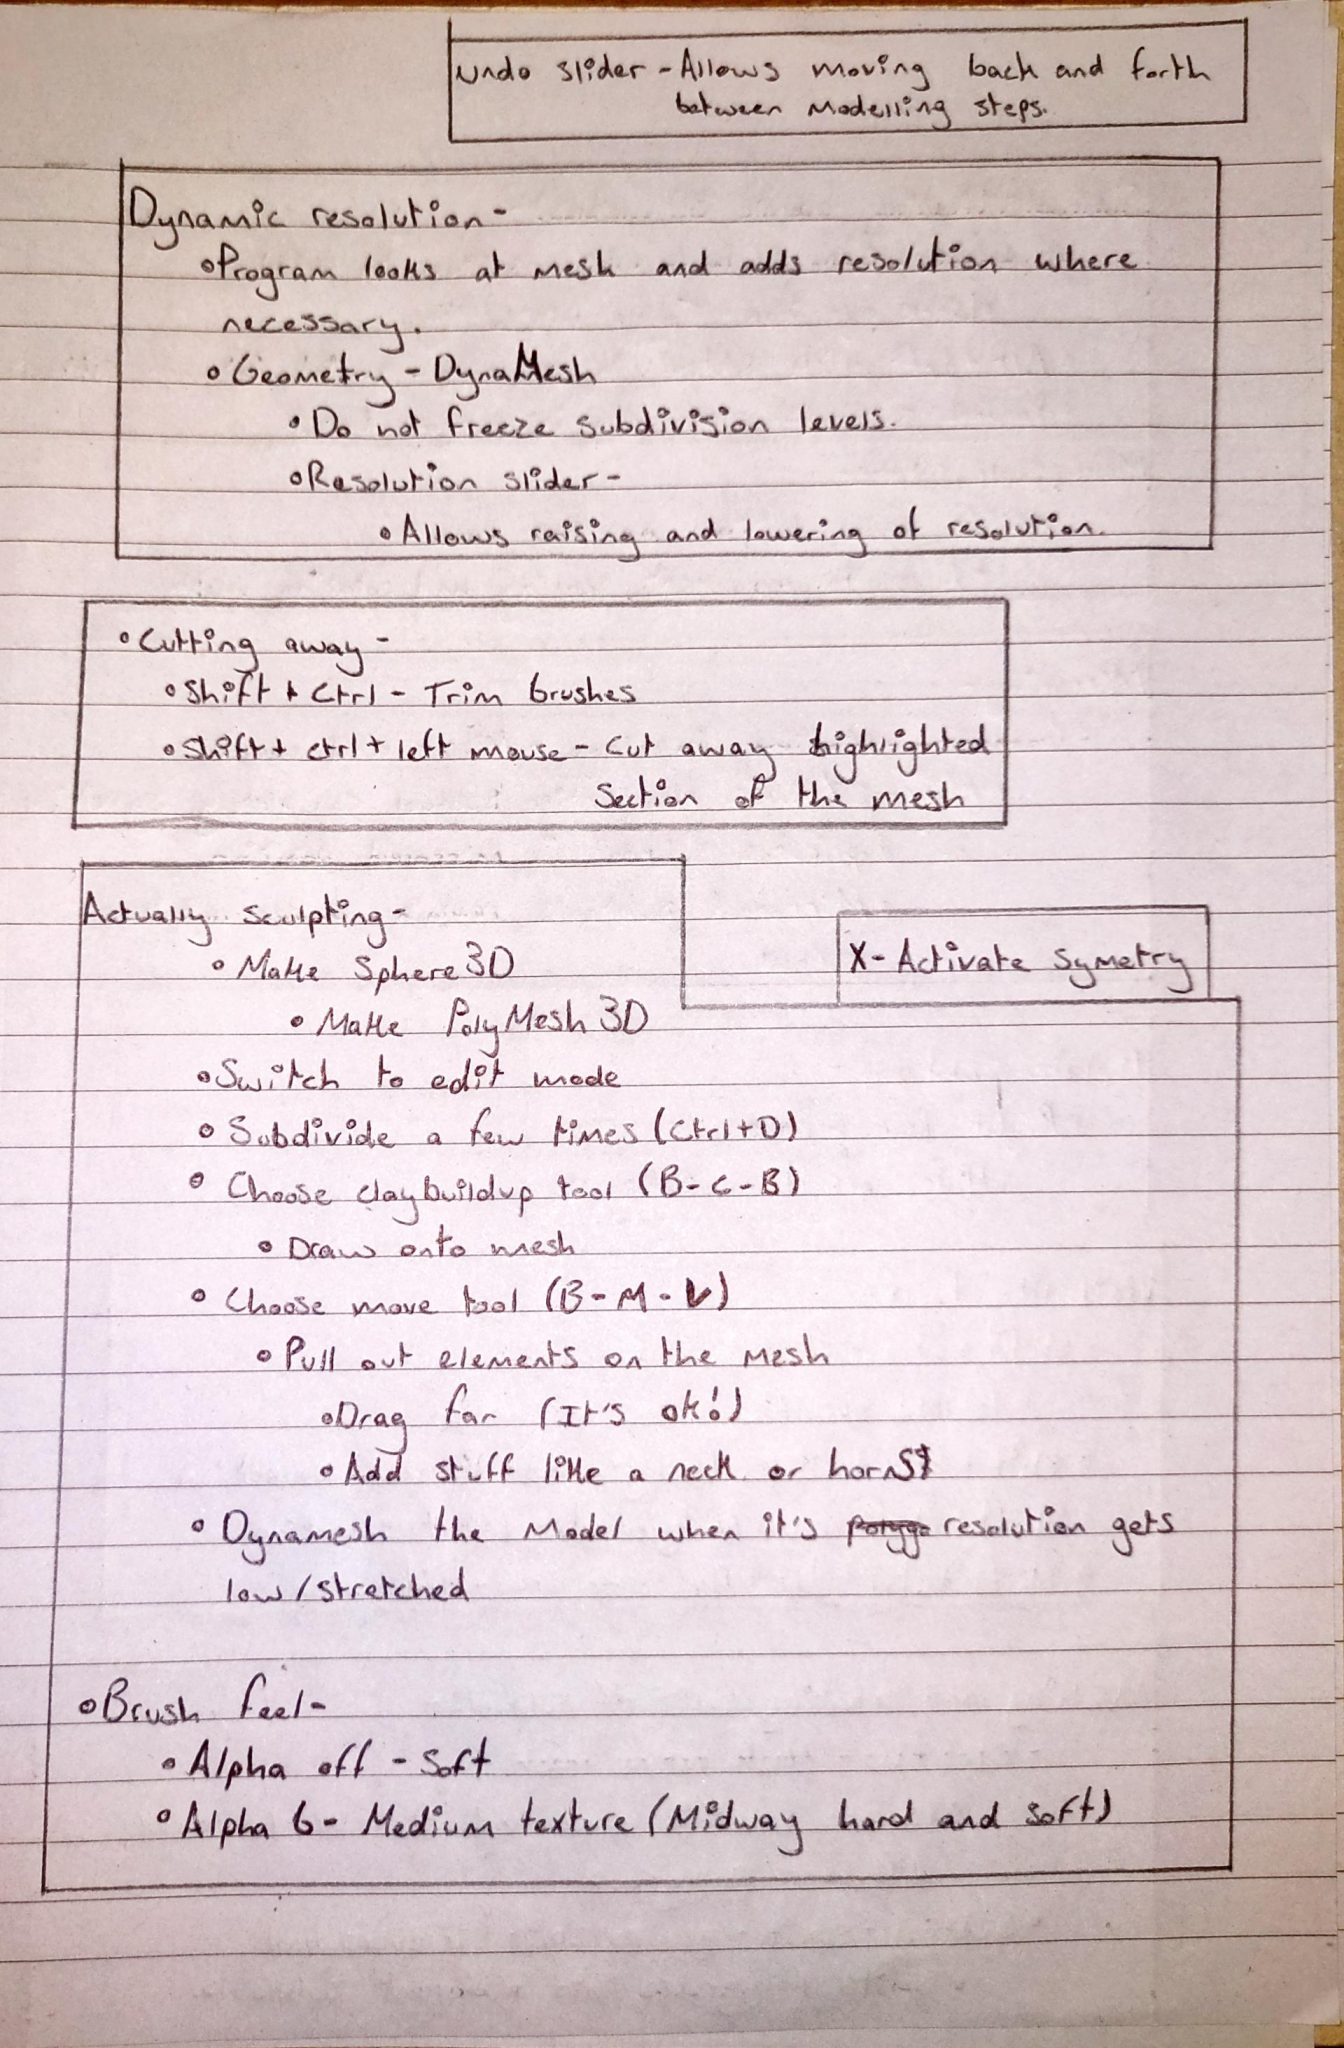 Undo slider - Allows moving back and forth
between modelling steps.
Dynamic resolution-
Program looks at mesh and adds resolution where
necessary.
Geometry - DynaMesh
Do not freeze subdivision levels.
Resolution slider-
Allows raising and lowering of resolution.
Cutting away-
Shift + Ctrl - Trim brushes
Shift + ctrl + left mouse - Cut away highlighted
section of the mesh
Actually sculpting-
Make Sphere 3D
X- Activate symetry
Make PolyMesh 3D
Switch to edit mode
Subdivide a few times (Ctrl+D)
Choose claybuildup tool (B-C-B)
Draw onto mesh
Choose move tool (B-M-V)
Pull out elements on the mesh
Drag far (It's ok!)
Add stuff like a neck or horns
Dynamesh the model when it's resolution gets
low/stretched
Brush feel-
Alpha off - soft
Alpha 6- Medium texture (Midway hard and soft)